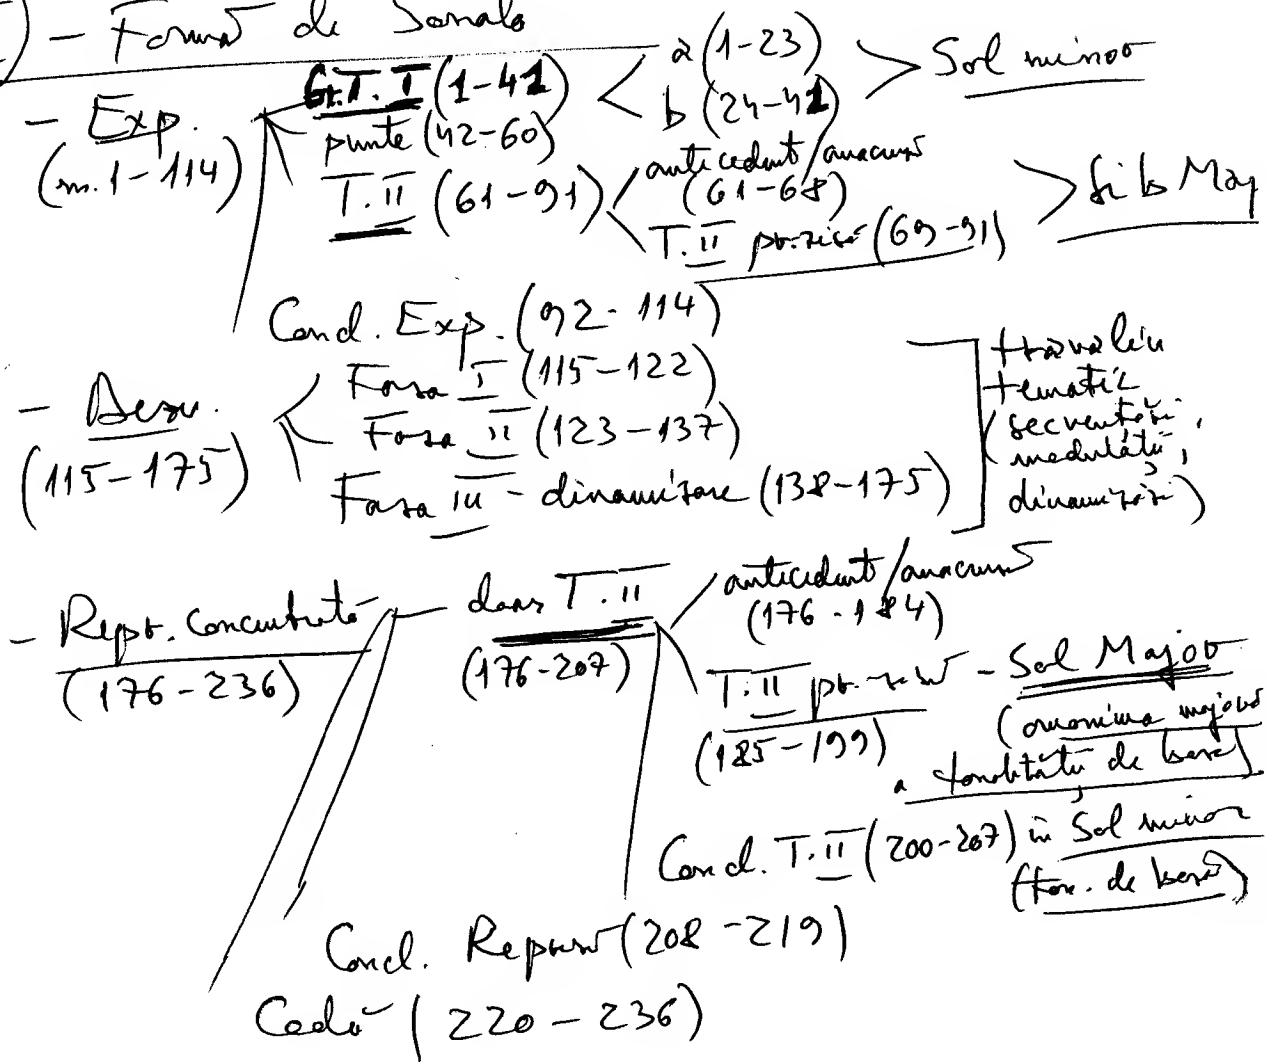 ) – Formă de Sonată
– Exp. (m. 1–114)
Gr.T. I (1–41) < a (1–23) > Sol minor
b (24–41)
punte (42–60)
T. II (61–91) < antecedent/anacruză (61–68) > Si b Maj
T. II pr. zisă (69–91)
Concl. Exp. (92–114)
– Dezv. (115–175)
Faza I (115–122)
Faza II (123–137)
Faza III – dinamizare (138–175)
travaliu
tematic
(secvențări,
modulații,
dinamizări)
– Repr. concentrată (176–236)
doar T. II (176–207)
antecedent/anacruză (176–184)
T. II pr. zisă – Sol Major (185–199)
(omonima majoră
a tonalității de bază)
Concl. T. II (200–207) în Sol minor
(ton. de bază)
Concl. Reprizei (208–219)
Codă (220–236)